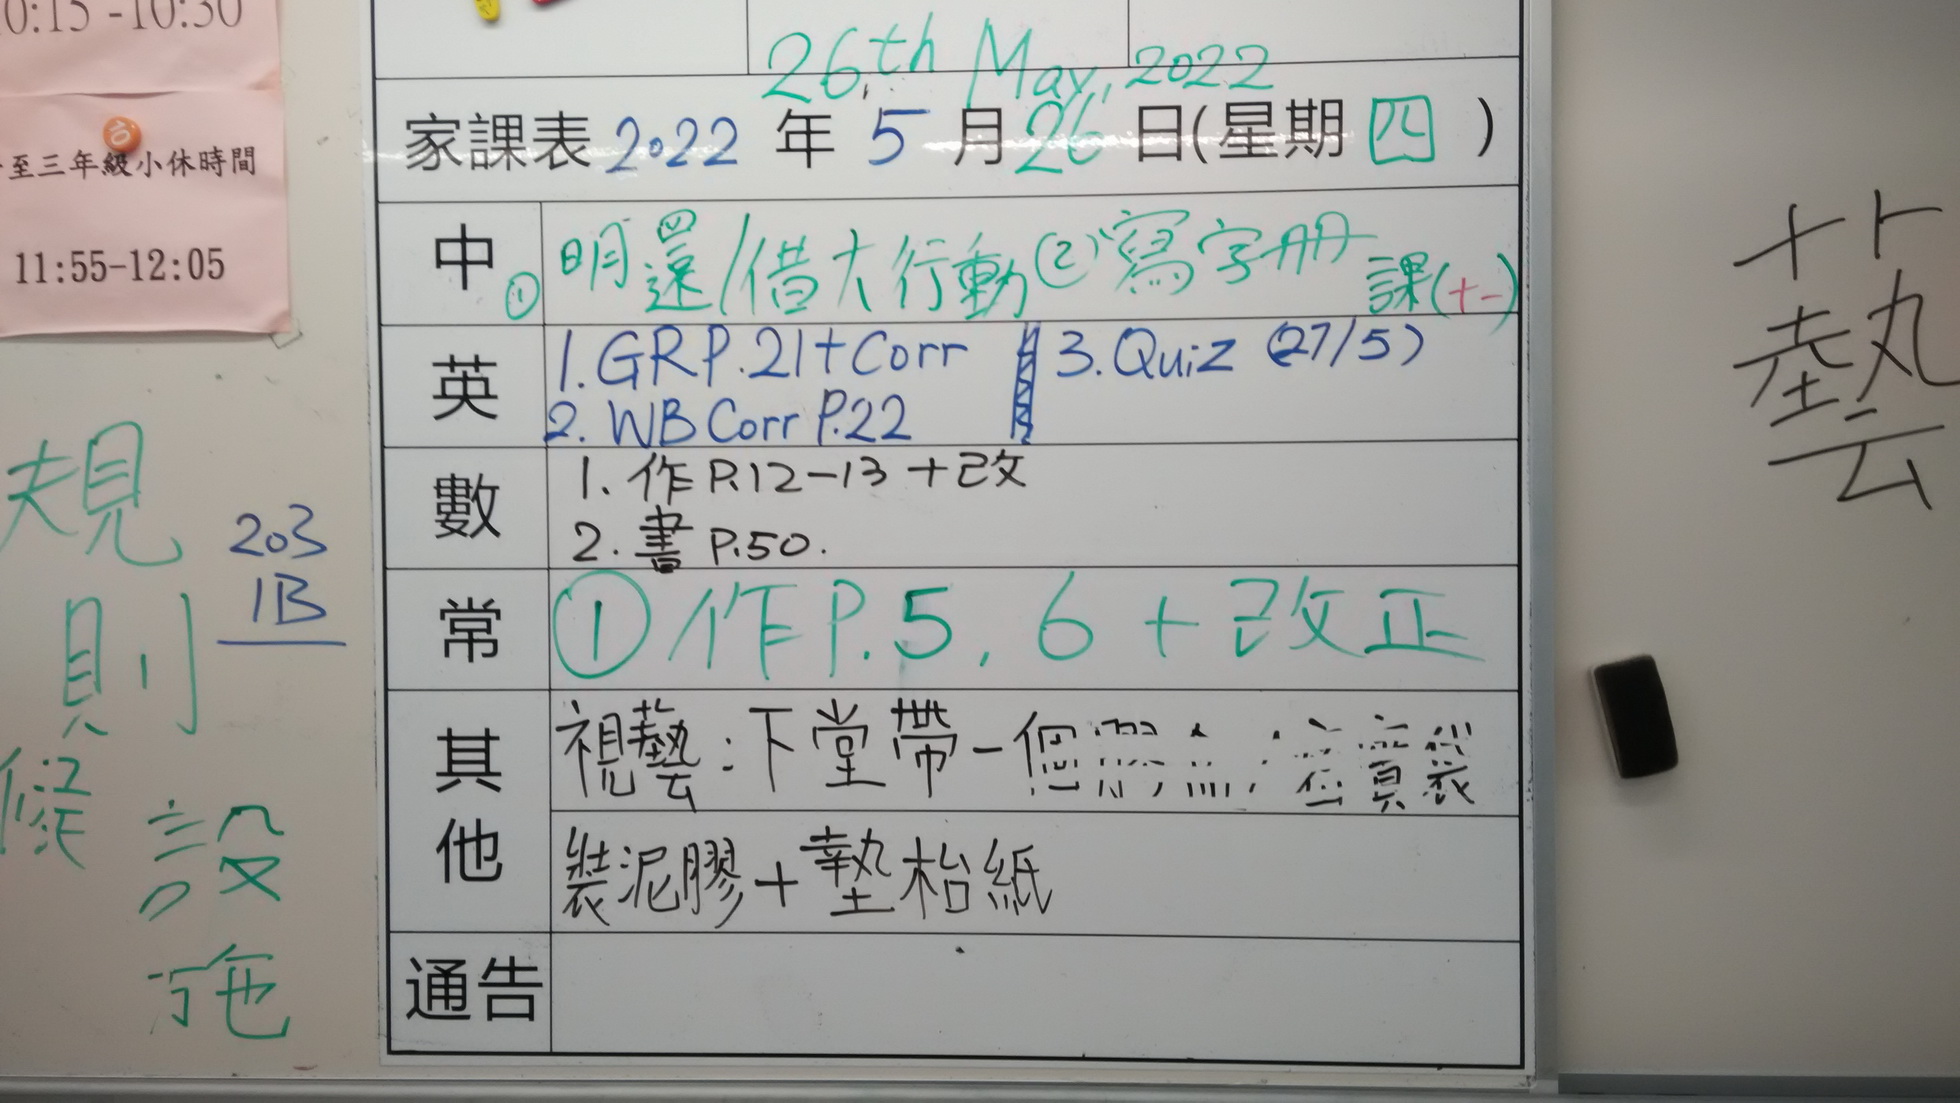 10:15-10:30
至三年級小休時間
11:55-12:05
26th May, 2022
家課表2022年5月26日(星期四)
中 ① 明還/借大行動 ② 寫字冊 課(十一)
英 1. GR P.21+Corr 3. Quiz (27/5)
2. WB Corr P.22
數 1. 作 P.12-13 +改
2. 書 P.50.
常 ① 作P.5, 6 + 改正
其他 視藝:下堂帶一個 袋
裝泥膠+墊枱紙
通告
規則
203
1B
設施
藝